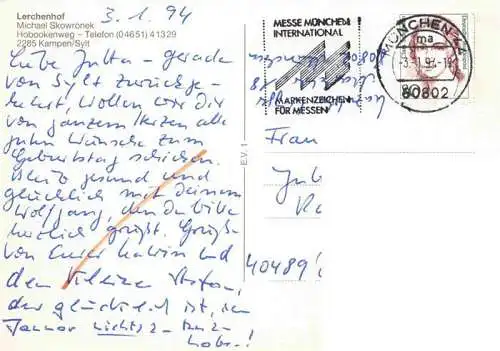 Lerchenhof
Michael Skowronek
Hobookenweg – Telefon (04651) 41329
2285 Kampen/Sylt
3.1.94
Liebe Jutta – gerade
von Sylt zurückge-
kehrt, wollen wir Dir
von ganzem Herzen alle
guten Wünsche zum
Geburtstag schicken.
Bleib gesund und
glücklich mit Deinem
Wolfgang, den Du bitte
herzlich grüßt. Grüße
von Eurer Katrin und
dem kleinen Stefan,
der glücklich ist, im
Januar nichts zu tun zu
haben!
E.V. 1
MESSE MÜNCHEN
INTERNATIONAL
MARKENZEICHEN
FÜR MESSEN
MÜNCHEN
ma
80802
Frau
Ju
40489